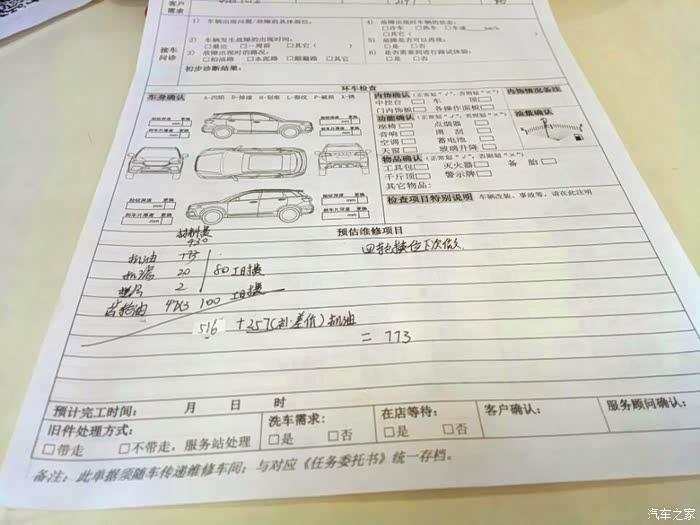 客户需求
接车问诊
1) 车辆出现问题/故障的具体部位:
2) 车辆发生故障的出现时间:
□最近 □一周前 □其它( )
3) 故障出现时的路况:
□柏油路 □水泥路 □颠簸路 □其它
初步诊断结果:
4) 故障出现时车辆的状态:
□冷车 □热车 □车速 km/h
□其它( )
5) 故障是否可以再现:
□是 □否
6) 是否需要到进行路试体验:
□是 □否
环车检查
车身确认
内饰确认(正常划“√”,否则划“×”)
中控台 车顶
门内饰板 各操作面板
功能确认(正常划“√”,否则划“×”)
座椅 点烟器
音响 雨刮
空调 蓄电池
天窗 玻璃升降
物品确认(正常划“√”,否则划“×”)
工具包 灭火器 备胎
千斤顶 警示牌
其它物品:
内饰情况备注
油量确认
检查项目特别说明 车辆改装、事故等,请在此注明
预估维修项目
材料费
机油
机滤 20 80 工时费
2
齿轮油 47X3 100 工时费
516 +257(补差价)机油
= 773
四轮换位下次做
预计完工时间: 月 日 时
旧件处理方式:
□带走 □不带走,服务站处理
洗车需求:
□是 □否
在店等待:
□是 □否
客户确认:
服务顾问确认:
备注:此单据须随车传递维修车间;与对应《任务委托书》统一存档。
汽车之家